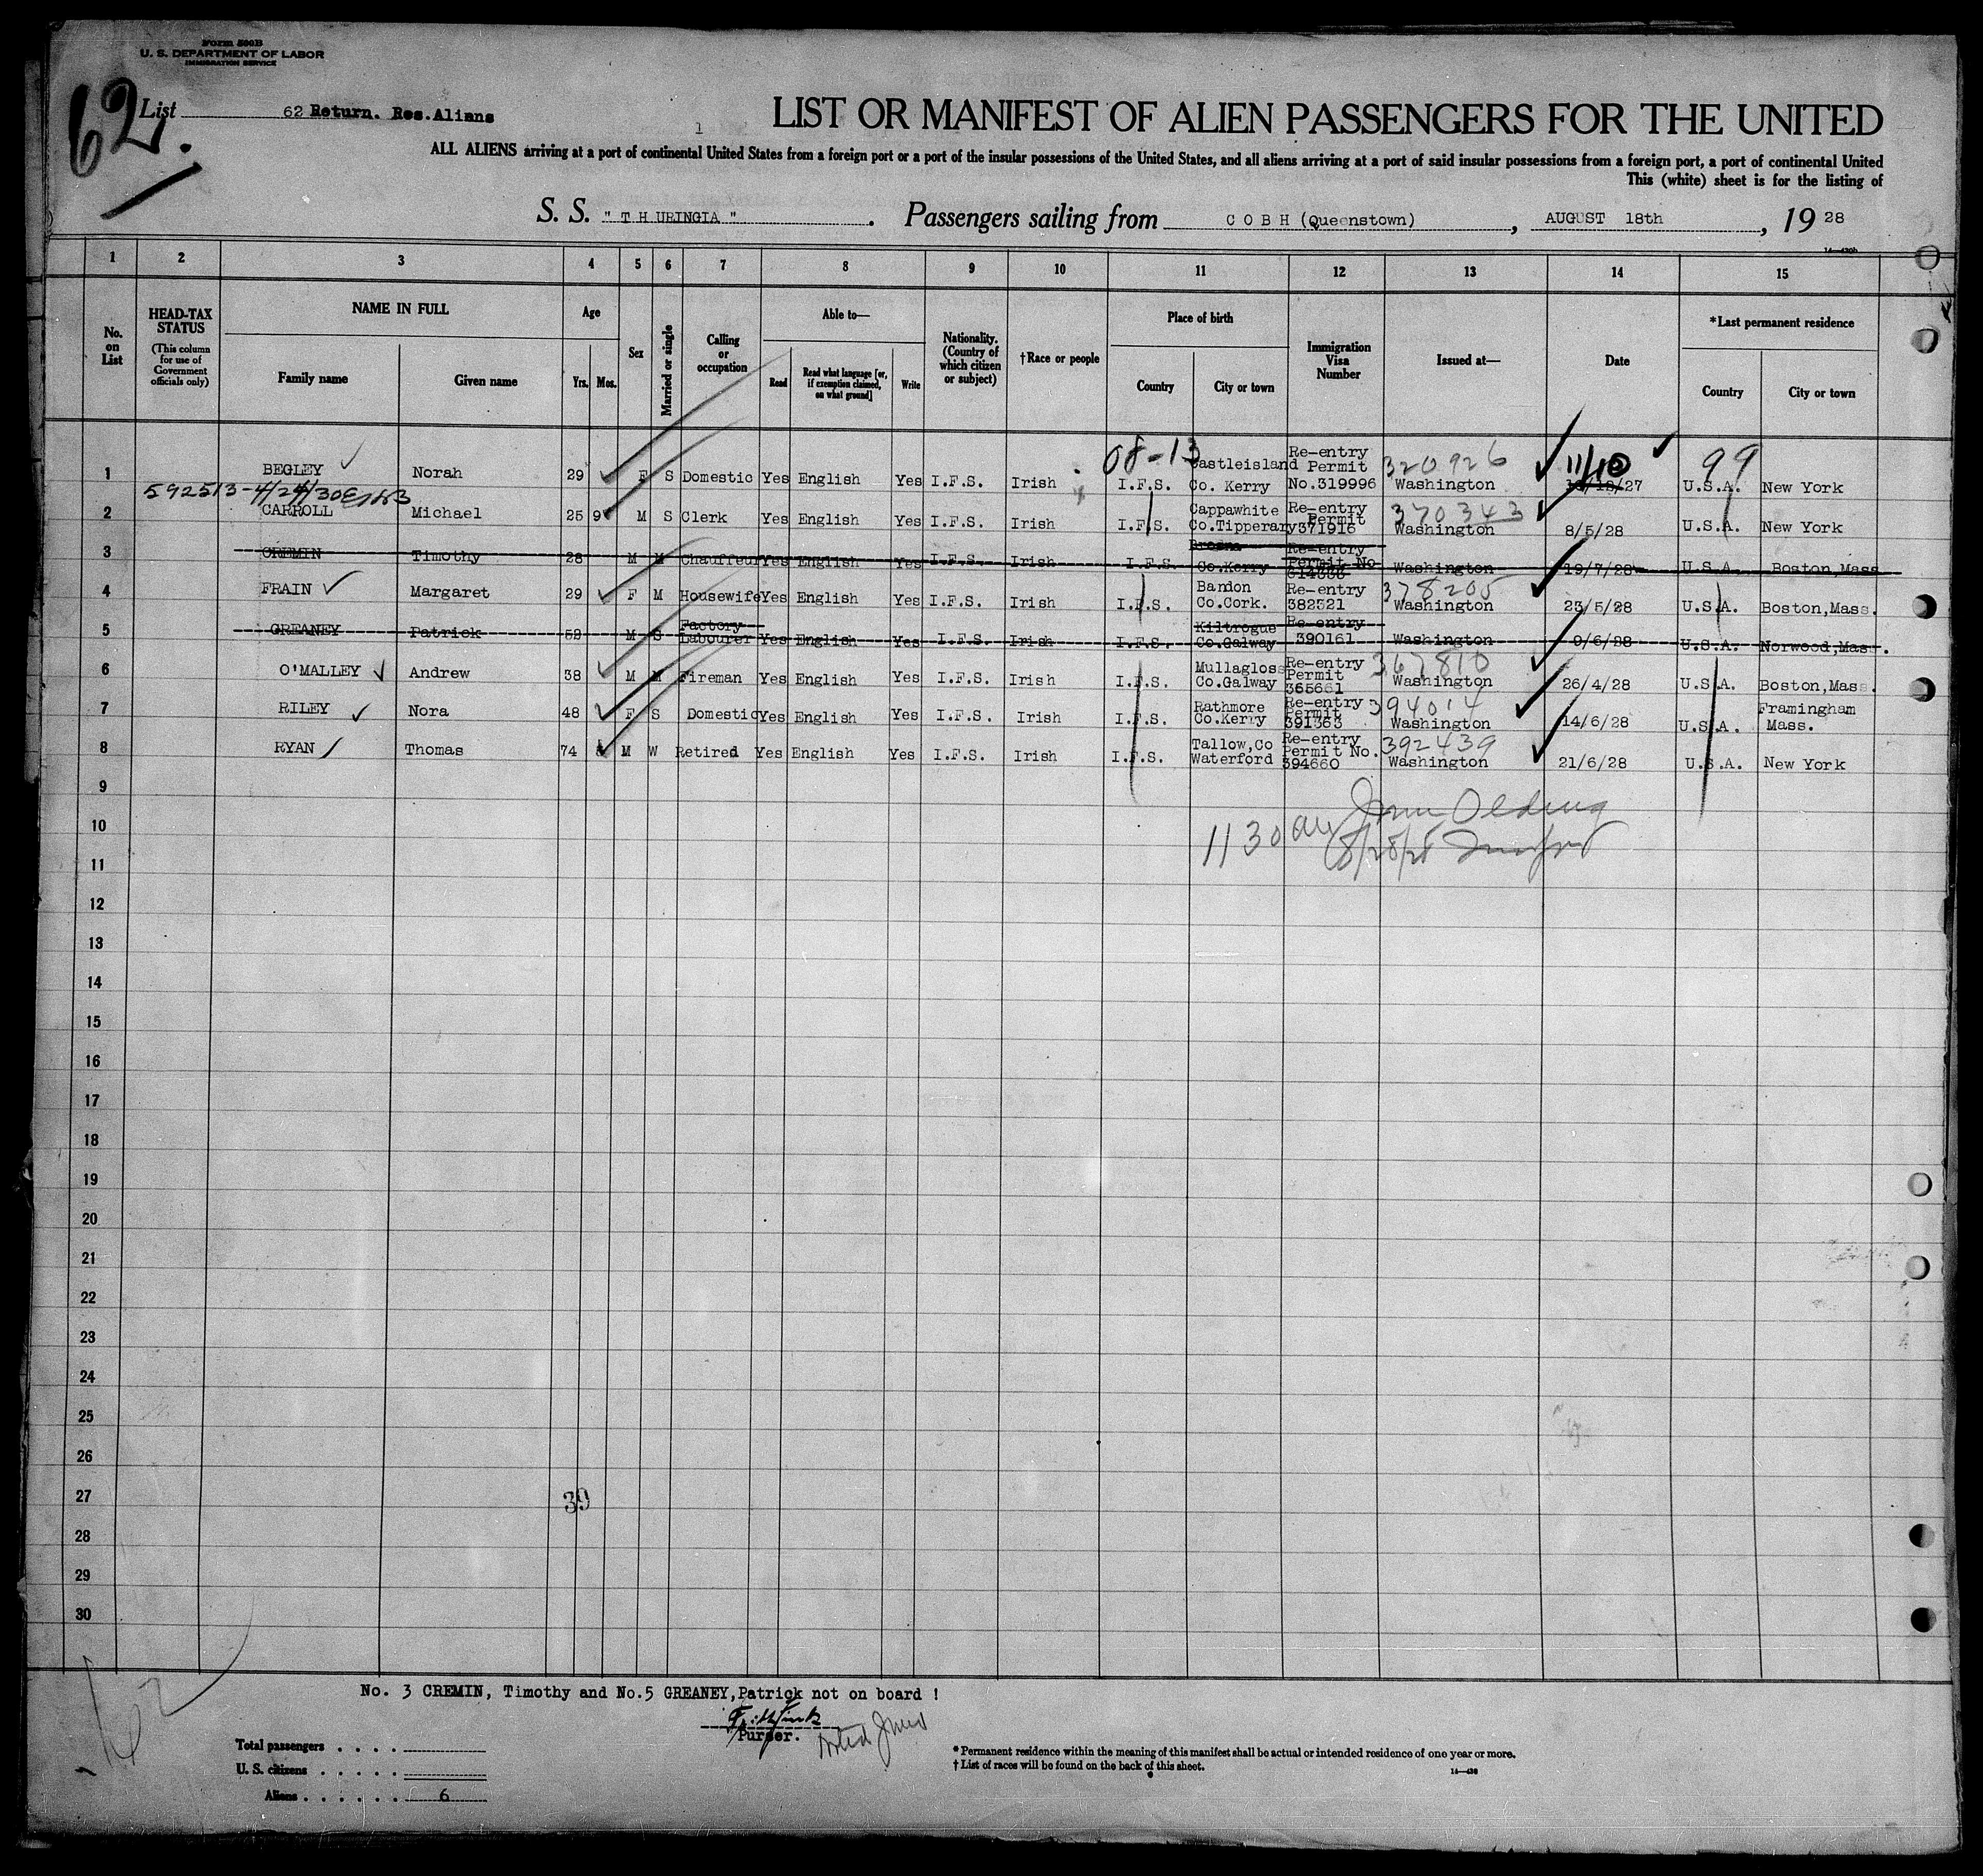 Form 500B
U. S. DEPARTMENT OF LABOR
IMMIGRATION SERVICE
62.
List 62 Return. Res.Aliens
1
LIST OR MANIFEST OF ALIEN PASSENGERS FOR THE UNITED
ALL ALIENS arriving at a port of continental United States from a foreign port or a port of the insular possessions of the United States, and all aliens arriving at a port of said insular possessions from a foreign port, a port of continental United
This (white) sheet is for the listing of
S. S. " T H URINGIA " . Passengers sailing from C O B H (Queenstown) , AUGUST 18th , 19 28
1 2 3 4 5 6 7 8 9 10 11 12 13 14 15
No. on List
HEAD-TAX STATUS
(This column for use of Government officials only)
NAME IN FULL
Family name Given name
Age
Yrs. Mos.
Sex
Married or single
Calling or occupation
Able to—
Read
Read what language [or, if exemption claimed, on what ground]
Write
Nationality. (Country of which citizen or subject)
†Race or people
Place of birth
Country City or town
Immigration Visa Number
Issued at—
Date
*Last permanent residence
Country City or town
08-13 99
1 BEGLEY Norah 29 F S Domestic Yes English Yes I.F.S. Irish I.F.S. Castleisland Co. Kerry Re-entry Permit No.319996 320926 Washington 11/10 /27 U.S.A. New York
592513-4/24/30
2 CARROLL Michael 25 9 M S Clerk Yes English Yes I.F.S. Irish I.F.S. Cappawhite Co.Tipperary Re-entry Permit 371916 370343 Washington 8/5/28 U.S.A. New York
3 CREMIN Timothy 28 M M Chauffeur Yes English Yes I.F.S. Irish I.F.S. Brosna Co.Kerry Re-entry Permit No Washington 19/7/28 U.S.A. Boston,Mass
4 FRAIN Margaret 29 F M Housewife Yes English Yes I.F.S. Irish I.F.S. Bandon Co.Cork. Re-entry 382521 378205 Washington 23/5/28 U.S.A. Boston,Mass.
5 GREANEY Patrick 52 M S Factory Labourer Yes English Yes I.F.S. Irish I.F.S. Kiltrogue Co.Galway Re-entry 390161 Washington 9/6/28 U.S.A. Norwood,Mass.
6 O'MALLEY Andrew 38 M M Fireman Yes English Yes I.F.S. Irish I.F.S. Mullagloss Co.Galway Re-entry Permit 365661 367810 Washington 26/4/28 U.S.A. Boston,Mass.
7 RILEY Nora 48 F S Domestic Yes English Yes I.F.S. Irish I.F.S. Rathmore Co.Kerry Re-entry Permit 391363 394014 Washington 14/6/28 U.S.A. Framingham Mass.
8 RYAN Thomas 74 M W Retired Yes English Yes I.F.S. Irish I.F.S. Tallow,Co Waterford Re-entry Permit No. 394660 392439 Washington 21/6/28 U.S.A. New York
9
10
1130 am 8/28/28
11
12
13
14
15
16
17
18
19
20
21
22
23
24
25
26
27
39
28
29
30
62
No. 3 CREMIN, Timothy and No.5 GREANEY,Patrick not on board !
Purser.
Total passengers . . . .
U. S. citizens . . . . .
Aliens . . . . . . 6
* Permanent residence within the meaning of this manifest shall be actual or intended residence of one year or more.
† List of races will be found on the back of this sheet.